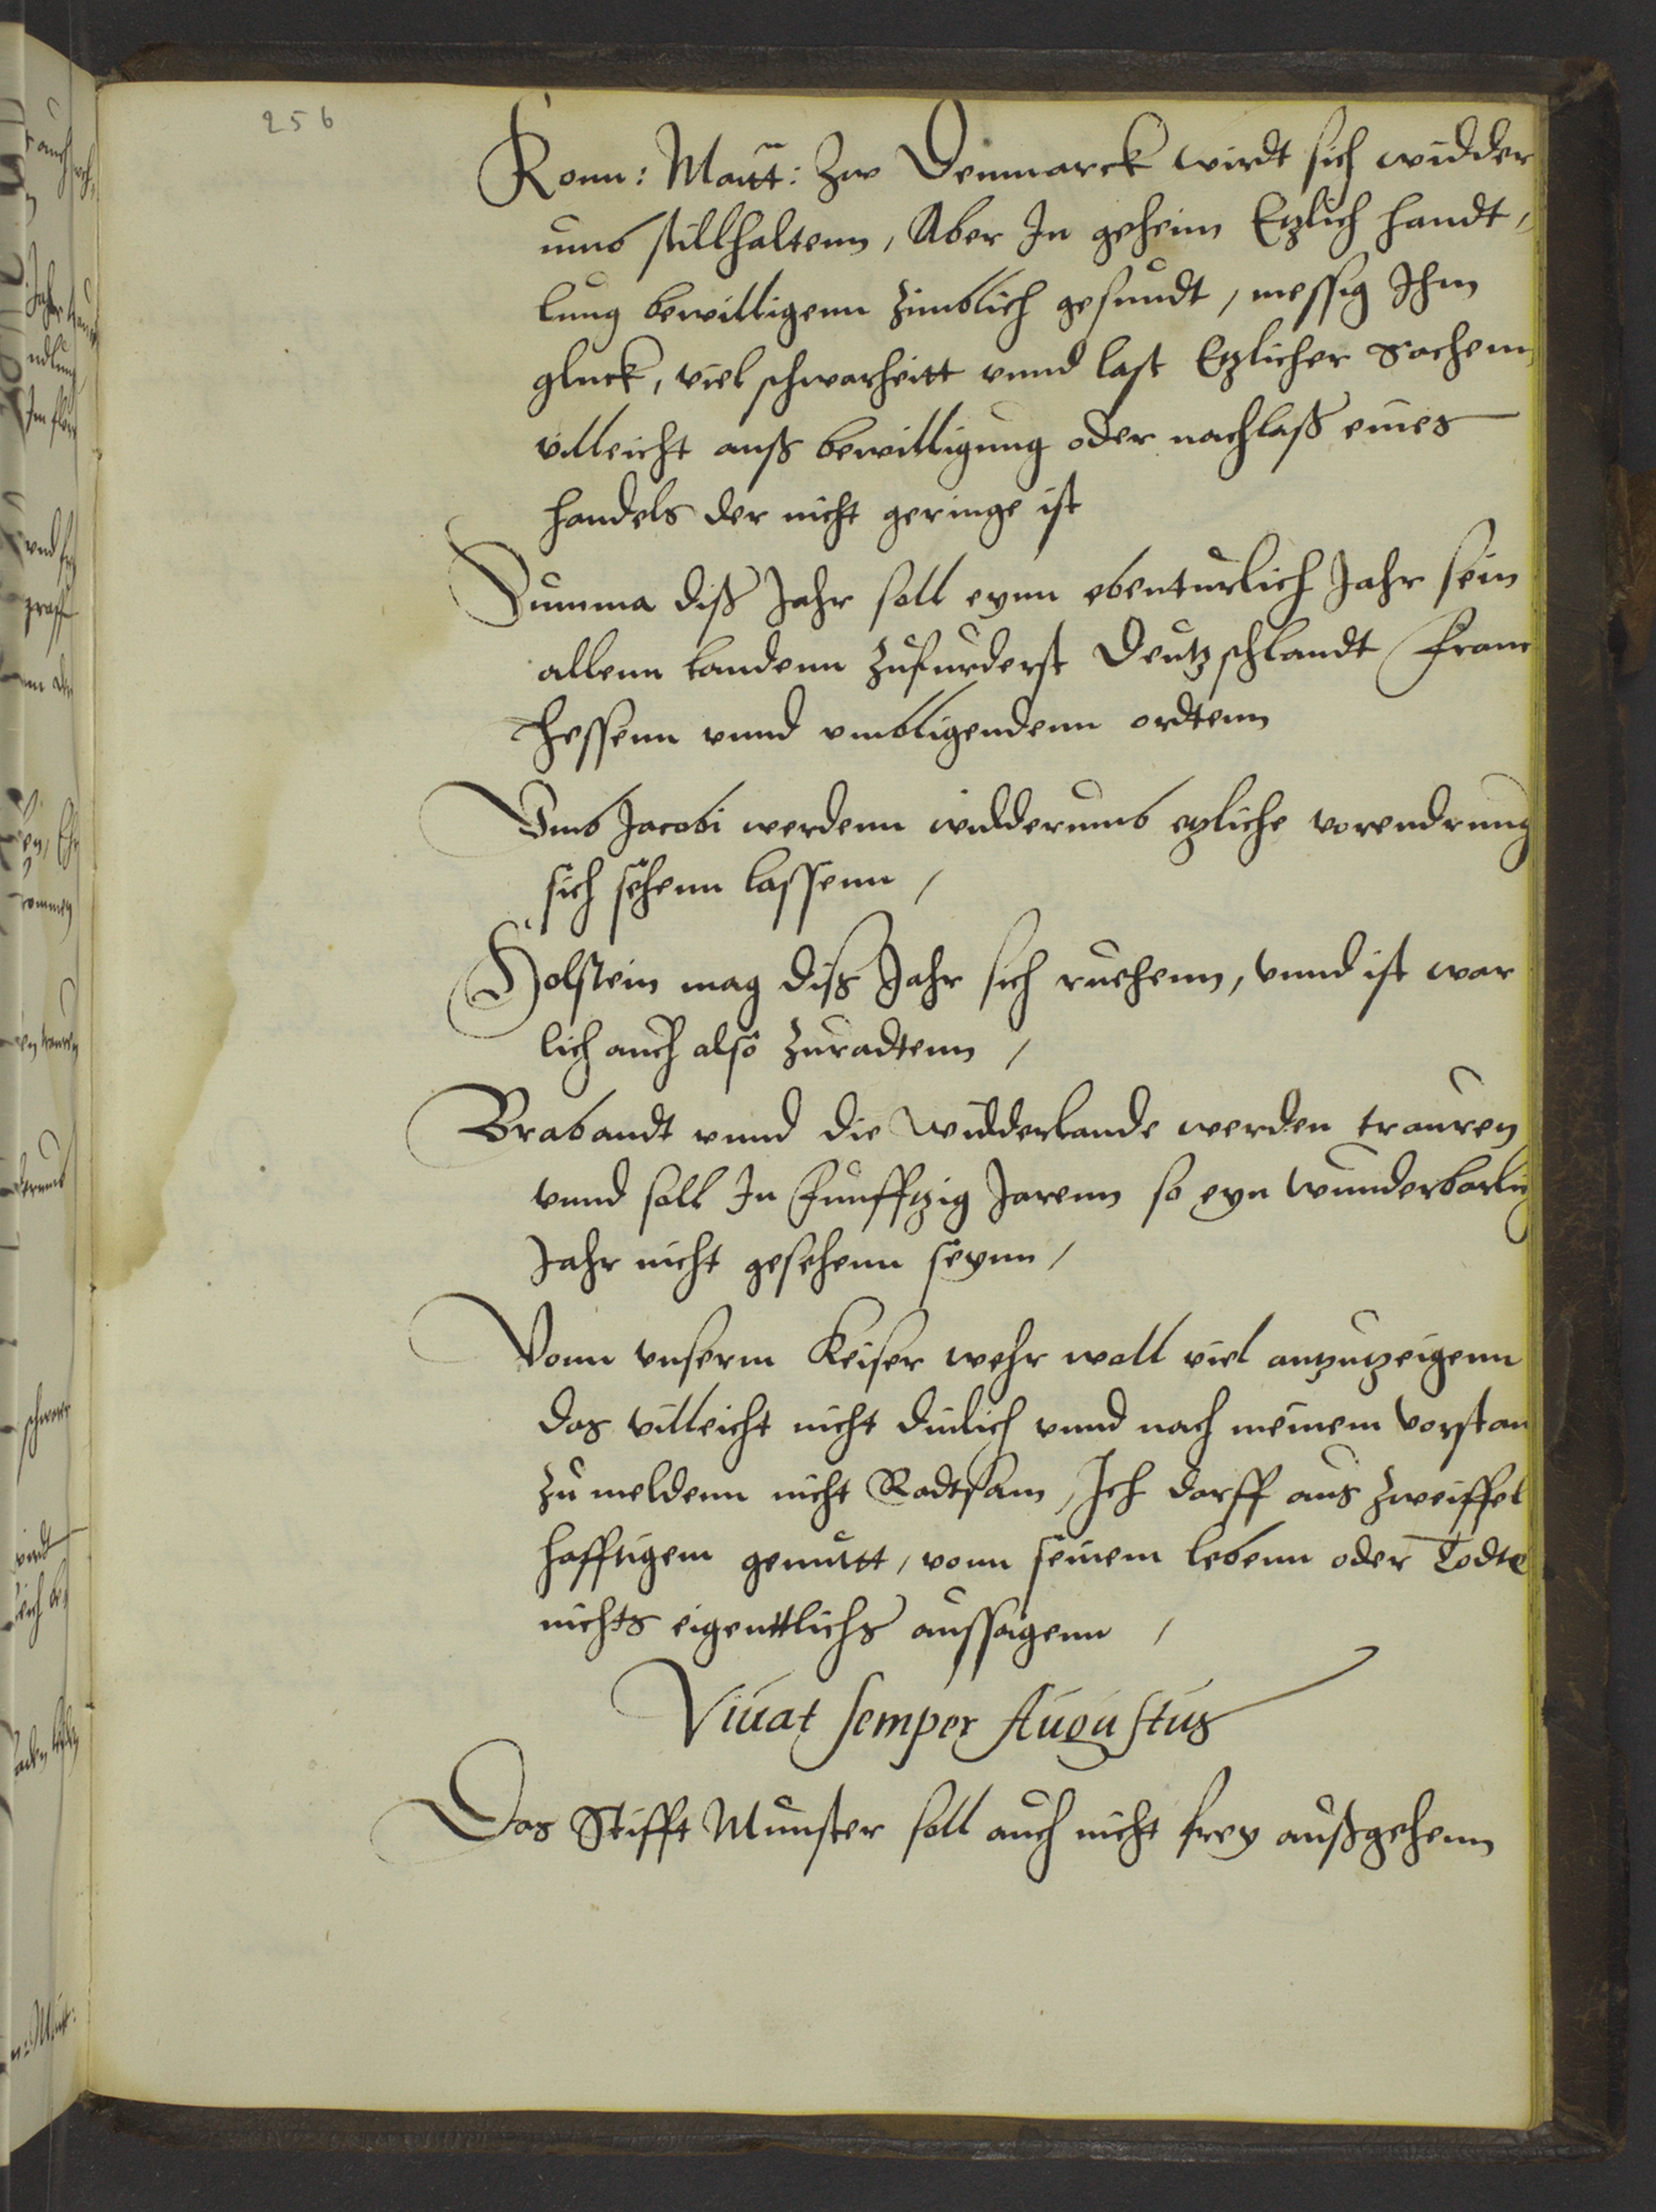 256
Konn: Maÿt: Zw Denmarck wirdt sich widder
umb stillhaltenn, Aber In geheim Etzlich handt,
lung bewilligenn zimblich gesundt, messig Ihm
gluck, viel schwarheitt vnnd last Etzlicher sachenn,
villeicht auß bewilligung oder nachlaß eines
handels der nicht geringe ist
Summa diß Jahr soll eynn ebenturlich Jahr sein
allenn landenn zufurderst Deutzschlandt Franc
Hessenn vnnd vmbligendenn ordtenn
Vmb Jacobi werdenn widderumb etzliche vorendrung
sich sehenn lassenn,
Holstein mag diß Jahr sich ruehenn, vnnd ist war
lich auch also zuradtenn,
Brabandt vnnd die Widderlande werden trauren
vnnd soll In Funfftzig Jarenn so eyn wunderbarlich
Jahr nicht gesehenn seynn,
Vonn vnserm Keiser wehr woll viel antzutzeigenn
das villeicht nicht dinlich vnnd nach meinem vorstan
zu meldenn nicht Radtsam, Ich darff aus zweiffel
hafftigem gemutt, vonn seinem lebenn oder Todte
nichts eigenttlichs aussagenn,
Viuat semper Augustus
Das Stifft Munster soll auch nicht frey außgehenn